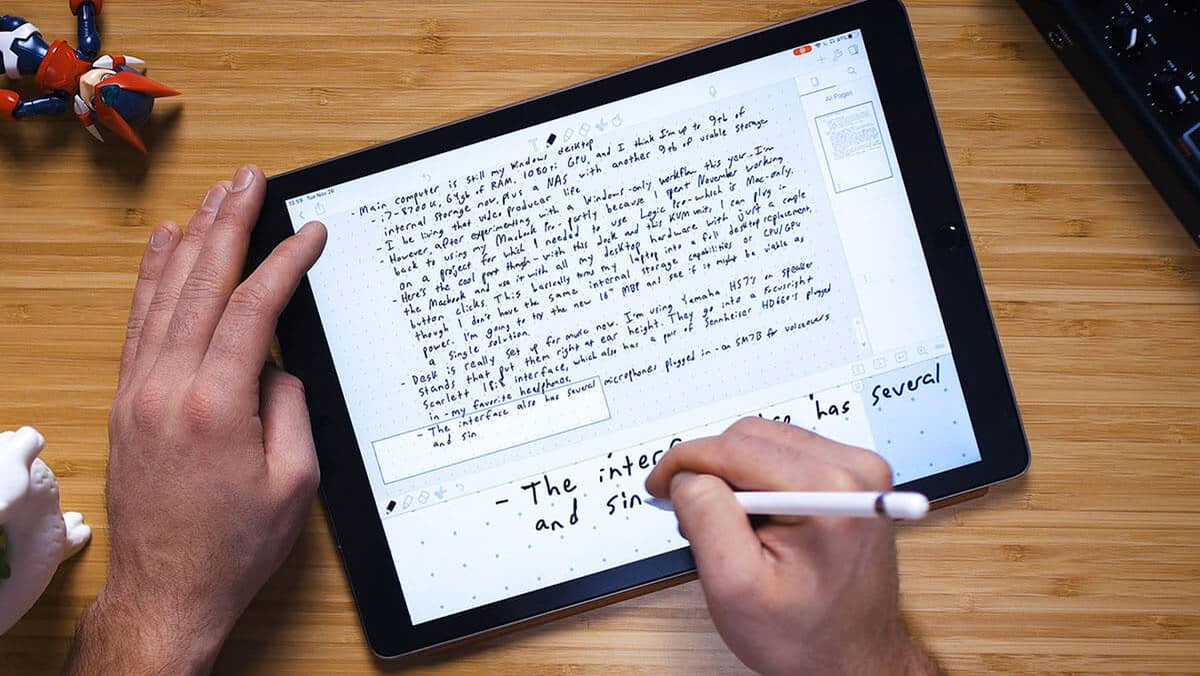 12:59 Tue Nov 26
All Pages
- Main computer is still my Windows desktop
- i7-8700K, 64gb of RAM, 1080ti GPU, and I think I'm up to 9tb of
internal storage now, plus a NAS with another 9tb of usable storage
- I be living that video producer life
- However, after experimenting with a Windows-only workflow this year, I'm
back to using my Macbook Pro - partly because I spent November working
on a project for which I needed to use Logic Pro - which is Mac-only.
- Here's the cool part though - with this dock and this KVM unit, I can plug in
the Macbook and use it with all my desktop hardware with just a couple
button clicks. This basically turns my laptop into a full desktop replacement,
though I don't have the same internal storage capabilities or CPU/GPU
power. I'm going to try the new 16" MBP and see if it might be viable as
a single solution.
- Desk is really set up for music now. I'm using Yamaha HS7's on speaker
stands that put them right at ear height. They go into a Focusright
Scarlett 18i8 interface, which also has a pair of Sennheiser HD660's plugged
in - my favorite headphones.
- The interface also has several microphones plugged in - an SM7B for voiceovers
and sin
- The has several
and sin